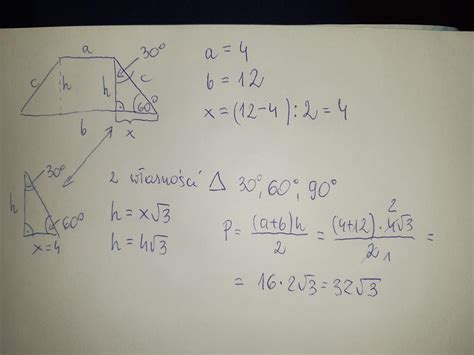 a
30°
c
h
h
c
60°
b
x
a = 4
b = 12
x = (12-4) : 2 = 4
30°
h
60°
x = 4
z własności △ 30°, 60°, 90°
h = x√3
h = 4√3
P = (a+b)h / 2 = (4+12) · 4√3 / 2 =
2
1
= 16 · 2√3 = 32√3